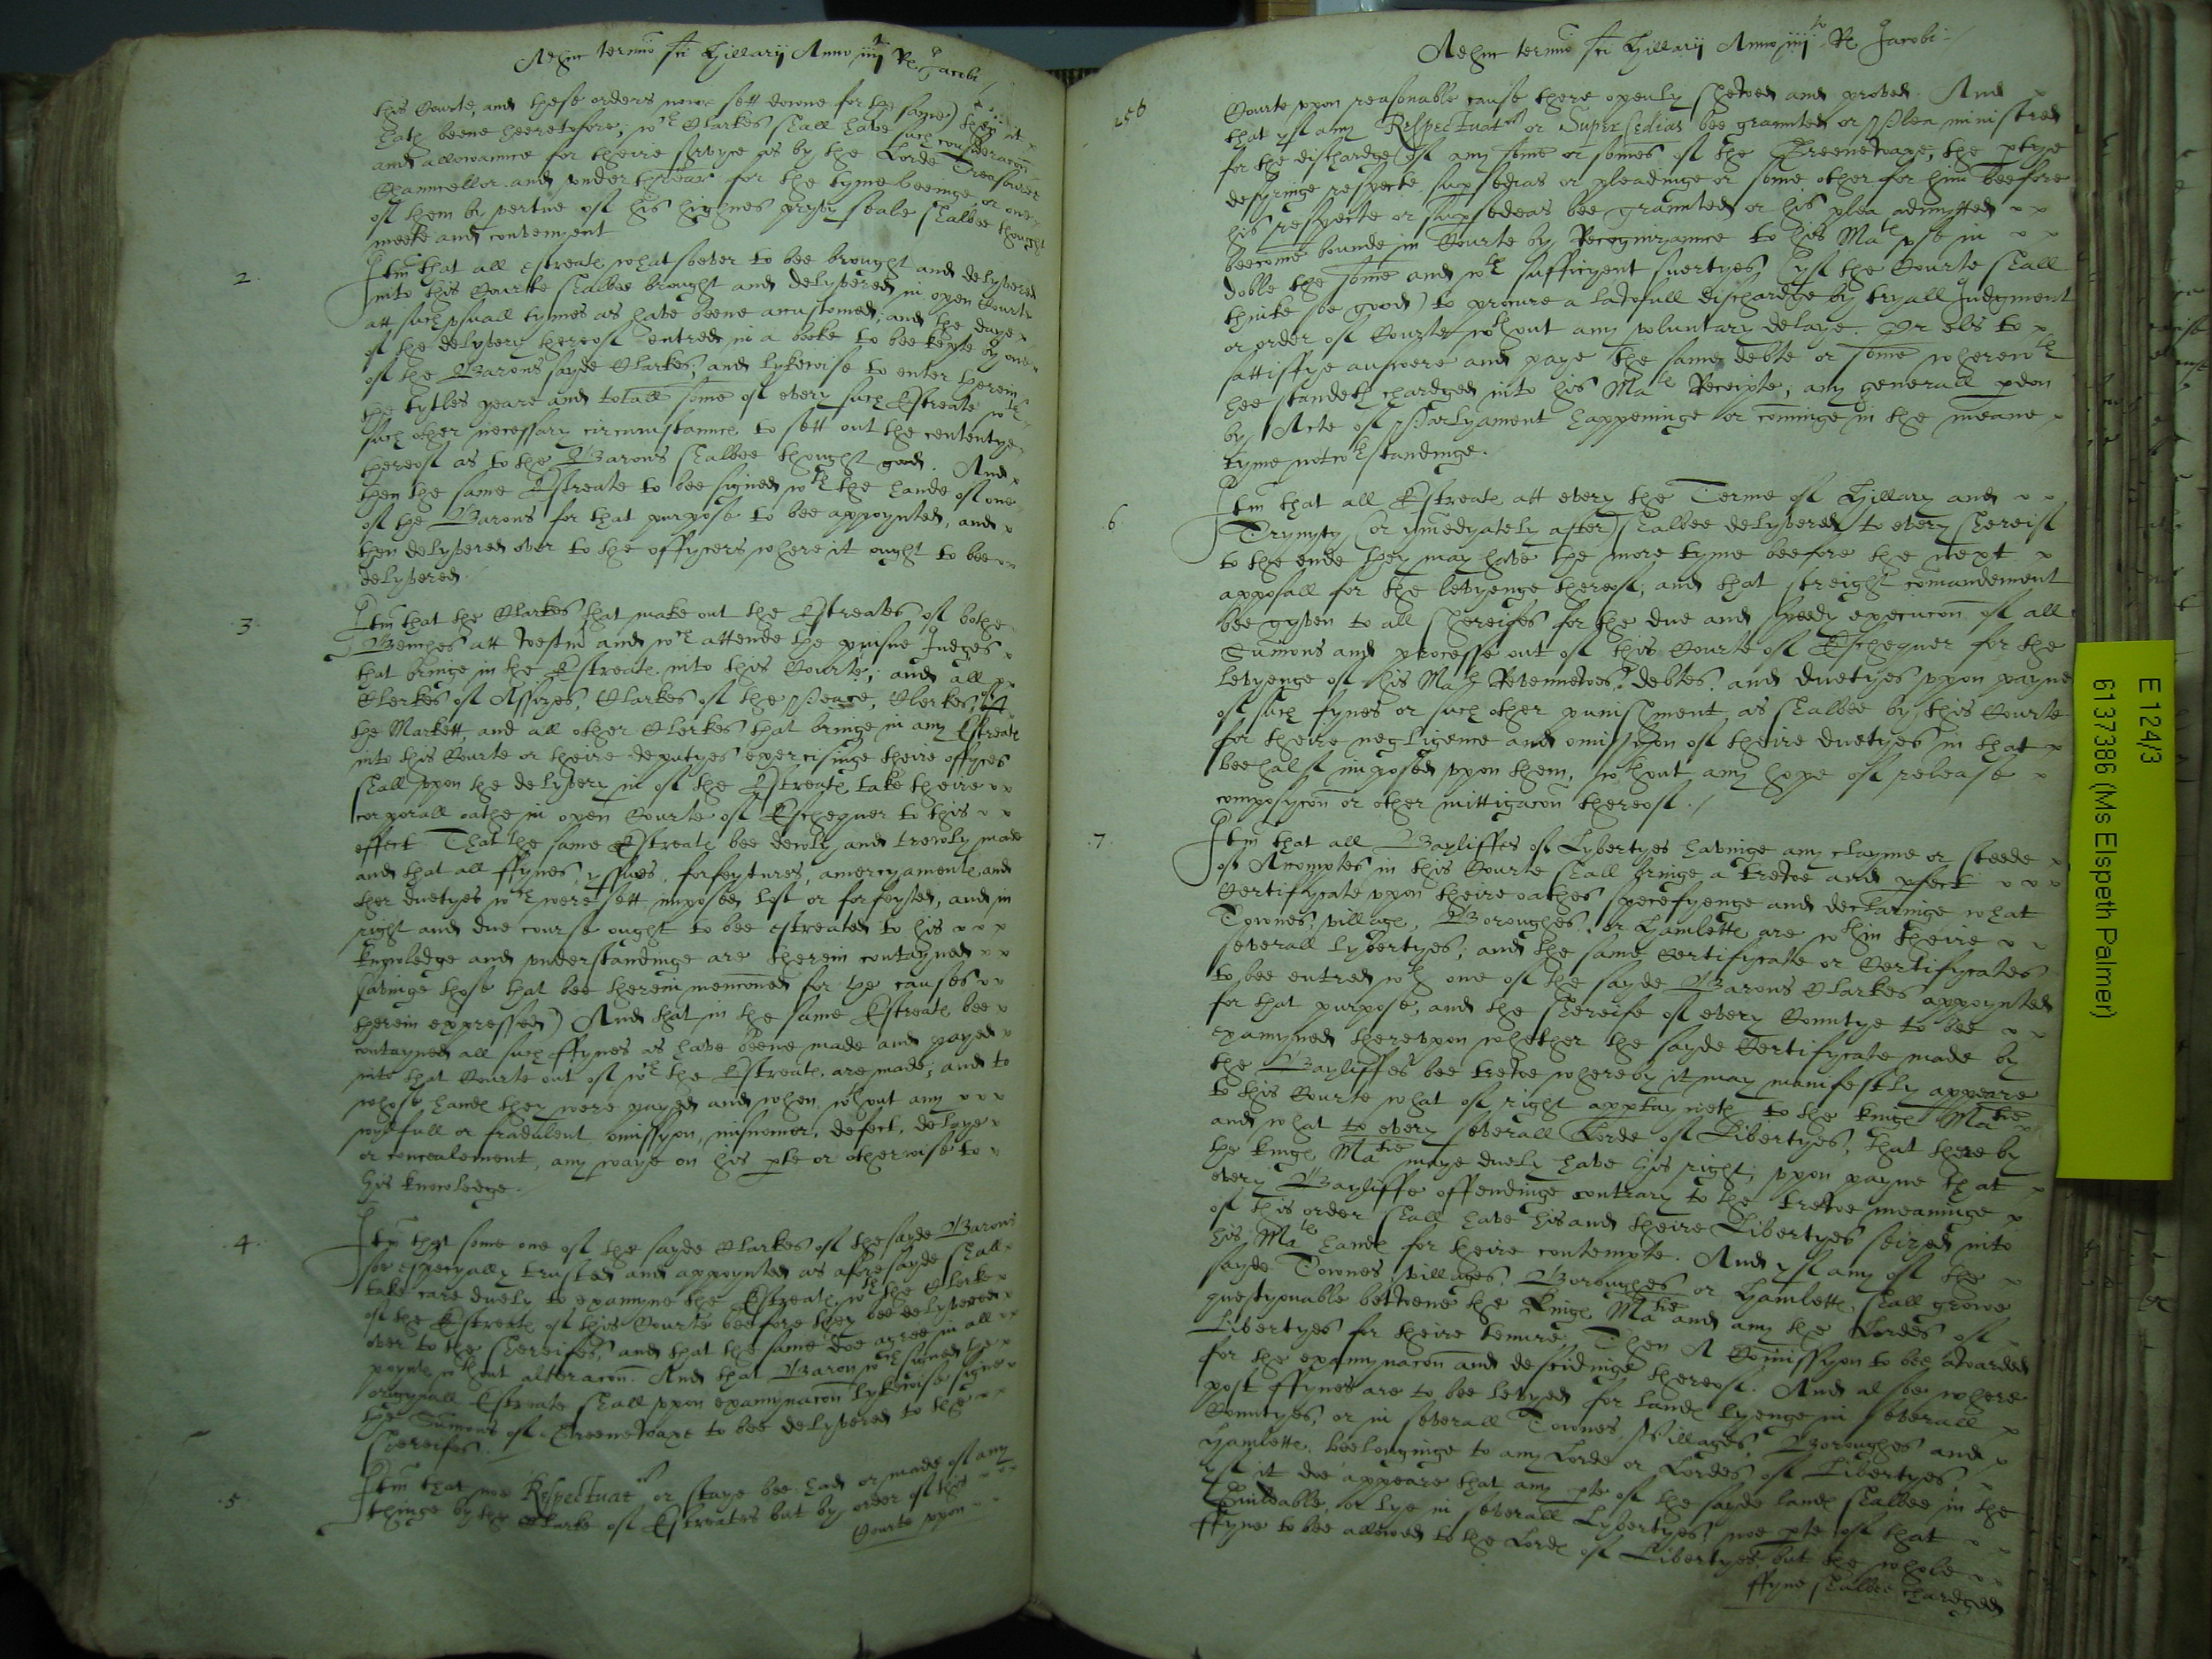 Adhuc termio sci Hillarij Anno iiijto Rs Jacobi
this Courte, and these orders nowe sett downe for the same) then it
hath beene heeretofore; wch Clarkes shall have such consideracon
and allowannce for theire servyce as by the Lorde Treasourer
Channcellor and under threar for the tyme beeinge, or one
of them by vertue of his highnes pryvy seale shalbee thought
meete and convenyent
2 Itm that all estreates whatsoever to bee brought and delyvered
into this Courte shalbee brought and delyvered in open Courte
att such usuall tymes as have beene accustomed; and the daye
of the delyvery thereof entred in a booke to bee kepte by one
of the Barons sayde Clarkes; and lykewise to enter therein
the tytles yeare and totall some of every such Estreate wth
such other necessary circumstannces to sett out the contentes
thereof as to the Barons shalbee thought good. And
then the same Estreate to bee signed wth the hande of one
of the Barons for that purpose to bee appoynted, and
then delyvered over to the offycers where it ought to bee
delyvered.
3 Itm that the Clarkes that make out the Estreates of bothe
Benches att westm and wch attende the puisne Judges
that bringe in the Estreates into this Courte; and all
Clerkes of Assizes, Clarkes of the Peace, Clerkes of
the Markett, and all other Clerkes that bringe in any Estreates
into this Courte or theire deputyes exercisinge theire offyces
shall upon the delyvery in of the Estreates take theire
corporall oathe in open Courte of Exchequer to this
effect That the same Estreates bee dewly and trewly made
and that all ffynes, yssues, forfeytures, amercyamentes and
ther duetyes wch were sett imposed lost or forfeyted, and in
right and due course ought to bee estreated to his
knowledge and understandinge are therein contayned
(savinge those that bee therein menconed for the causes
therein expressed) And that in the same Estreates bee
contayned all such ffynes as have beene made and payed
into that Courte out of wch the Estreates are made; and to
whose handes they were payed and when wthout any
wylfull or fradulent omissyon, misnomer, defect, delaye
or concealement, any waye on his pte or otherwise to
his knowledge.
4 Itm that some one of the sayde Clarkes of the sayde Barons
soe especyally trusted and appoynted as aforesayde shall
take care duely to examyne the Estreates wth the Clarke
of the Estreates of this Courte beefore they bee delyvered
over to the shereifes, and that the same doe agree in all
poyntes wthout alteracon. And that Baron wch signed the
origynall Estreate shall upon examynacon lykewise signe
the Sumons of Greenewaxe to bee delyvered to the
shereifes.
5 Itm that noe Respectuat or staye bee had or made of any
thinge by the Clarke of Estreates but by order of this
Courte upon
256
Adhuc termio sci Hillarij Anno iiijto Rs Jacobi
Courte upon reasonable cause there openly shewed and proved. And
that yf any Respectuat or Supersedias bee graunted or Plea ministred
for the dischardge of any some or somes of the Greenewaxe, the ptye
desyringe respecte supsedias or pleadinge or some other for him beefore
his respecte or supsedeas bee graunted or his plea admytted
beecome bounde in Courte by Recognizannce to his Mats use in
doble the some and wth sufficyent suertyes (yf the Courte shall
thinke soe good) to procure a lawfull dischardge by tryall Judgment
or order of Courte wthout any voluntary delaye. Or els to
sattisfye answere and paye the same debte or some wherewth
hee standeth chardged into his Mats Receipte; any generall pdon
by Acte of Parlyament happeninge or cominge in the meane
tyme notwthstandinge.
6 Itm that all Estreates att every the Terme of Hillary and
Trynyty (or ymedyately after) shalbee delyvered to every shereif
to the ende they may have the more tyme beefore the next
apposall for the levyenge thereof; and that streight comandement
bee gyven to all shereifes for the due and speedy execucon of all
Sumons and processe out of this Courte of Exchequer for the
levyenge of his Mats Revennewes, debtes, and duetyes upon payne
of such fynes or such other punishment as shalbee by this Courte
for theire negligence and omissyon of theire duetyes in that
beehalf imposed upon them, wthout any hope of release
composycon or other mittigacon thereof.
7 Itm that all Bayliffes of Lybertyes havinge any clayme or
of Accomptes in this Courte shall bringe a trewe and pfect
Certifycate upon theire oathes specefyenge and declaringe what
Townes, villages, Boroughes, or Hamletts are wthin theire
severall lybertyes; and the same Certifycate or Certifycates
to bee entred wth one of the sayde Barons Clarkes appoynted
for that purpose, and the shereife of every Countye to bee
examyned thereupon whether the sayde Certifycate made by
the Bayliffes bee trewe whereby it may manifestly appeare
to this Courte what of right apptayneth to the kings Matie
and what to every severall Lorde of Libertyes, that thereby
the kings Matie maye duely have his right; upon payne that
every Bayliffe offendinge contrary to the trewe meaninge
of this order shall have his and theire Libertyes seized into
his Mats handes for theire contempte. And yf any of the
sayde Townes, villages, Boroughes or Hamletts, shall growe
questyonable betweene the kings Matie and any the Lordes of
Libertyes for theire tenure, Then A Comissyon to bee awarded
for the examynacon and descidinge thereof. And alsoe where
post ffynes are to bee levyed for landes lyenge in severall
Countyes, or in severall Townes, Villages, Boroughes and
Hamletts, beelonginge to any Lorde or Lordes of Libertyes,
yf it doe appeare that any pte of the sayde landes shalbee in the
Guildable, or lye in severall Lybertyes, noe pte of that
ffyne to bee allowed to the Lordes of Libertyes, but the whole
ffyne shalbee chardged
E 124/3
6137386 (Ms Elspeth Palmer)